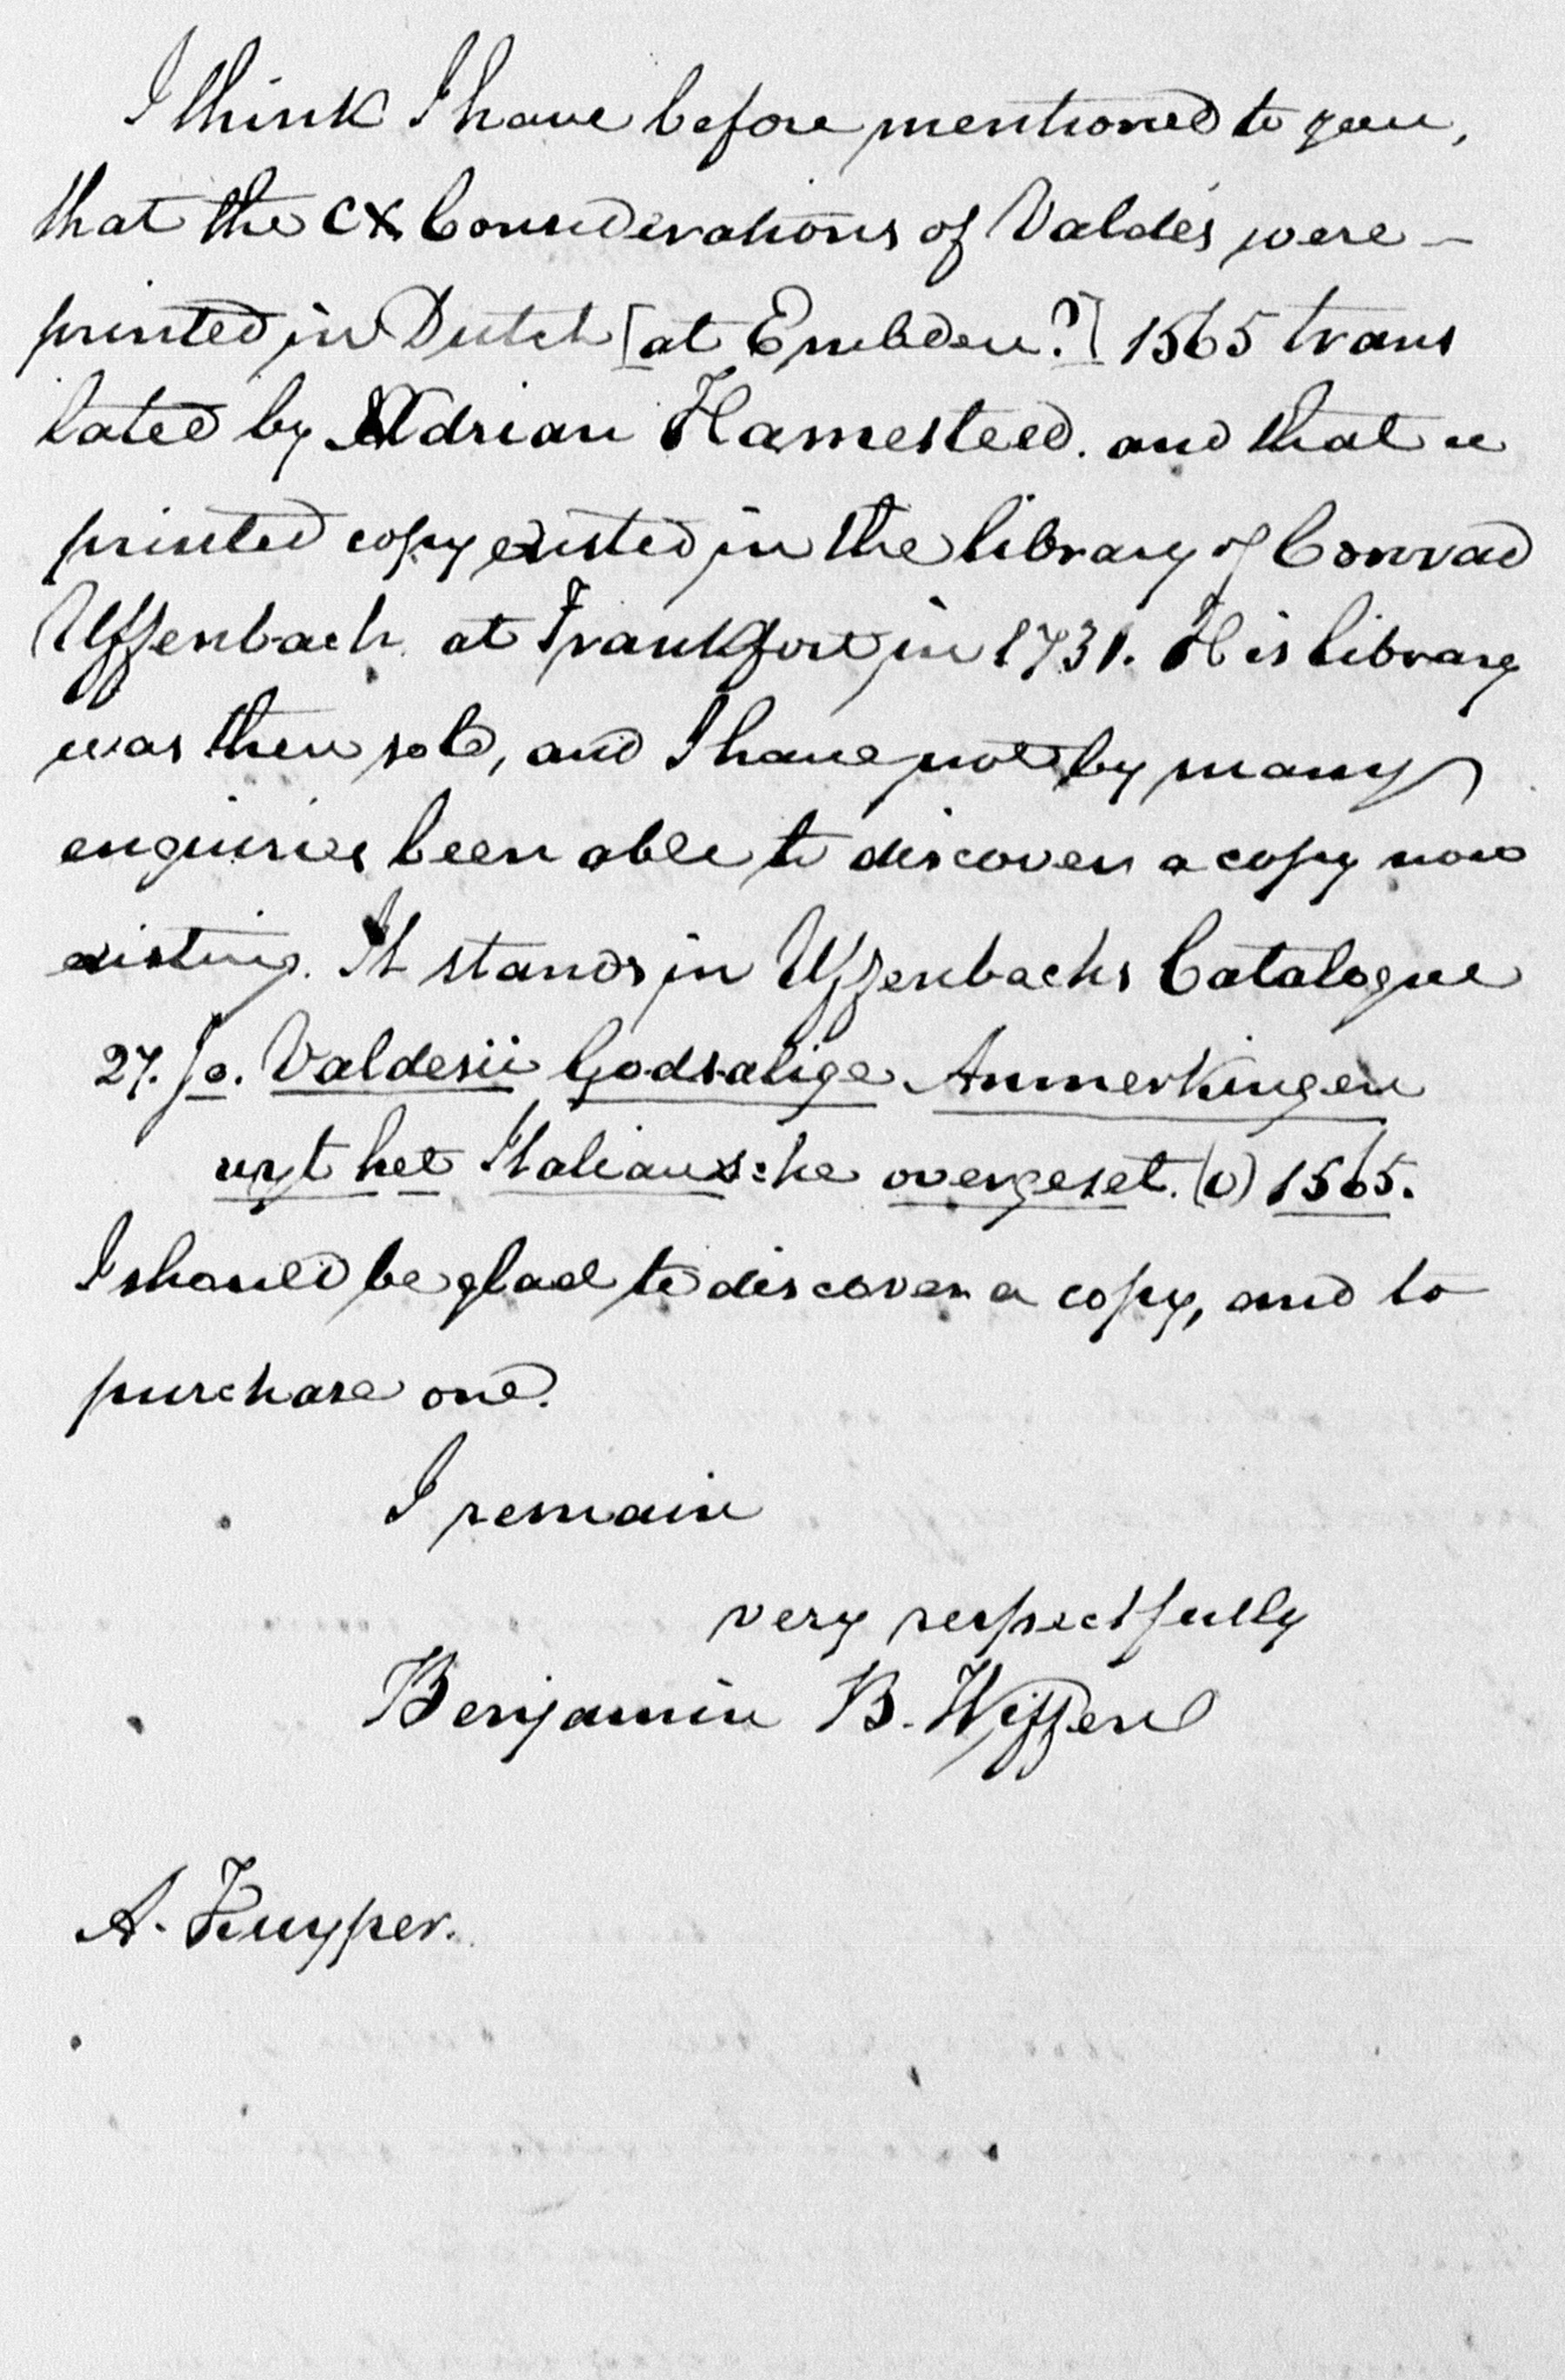 I think I have before mentioned to you,
that the CX Considerations of Valdés were –
printed in Dutch [at Embden?] 1565 trans
lated by Adrian Hamesteed. and that a
printed copy existed in the library of Conrad
Uffenbach at Frankfort in 1731. His library
was then sold, and I have not by many
enquiries been able to discover a copy now
existing. It stands in Uffenbachs Catalogue
27. Jo. Valdesii Godsalige Anmerkingen
uyt het Italiansche overgeset. (v) 1565.
I should be glad to discover a copy, and to
purchase one.
I remain
very respectfully
Benjamin B. Wiffen
A. Kuyper.